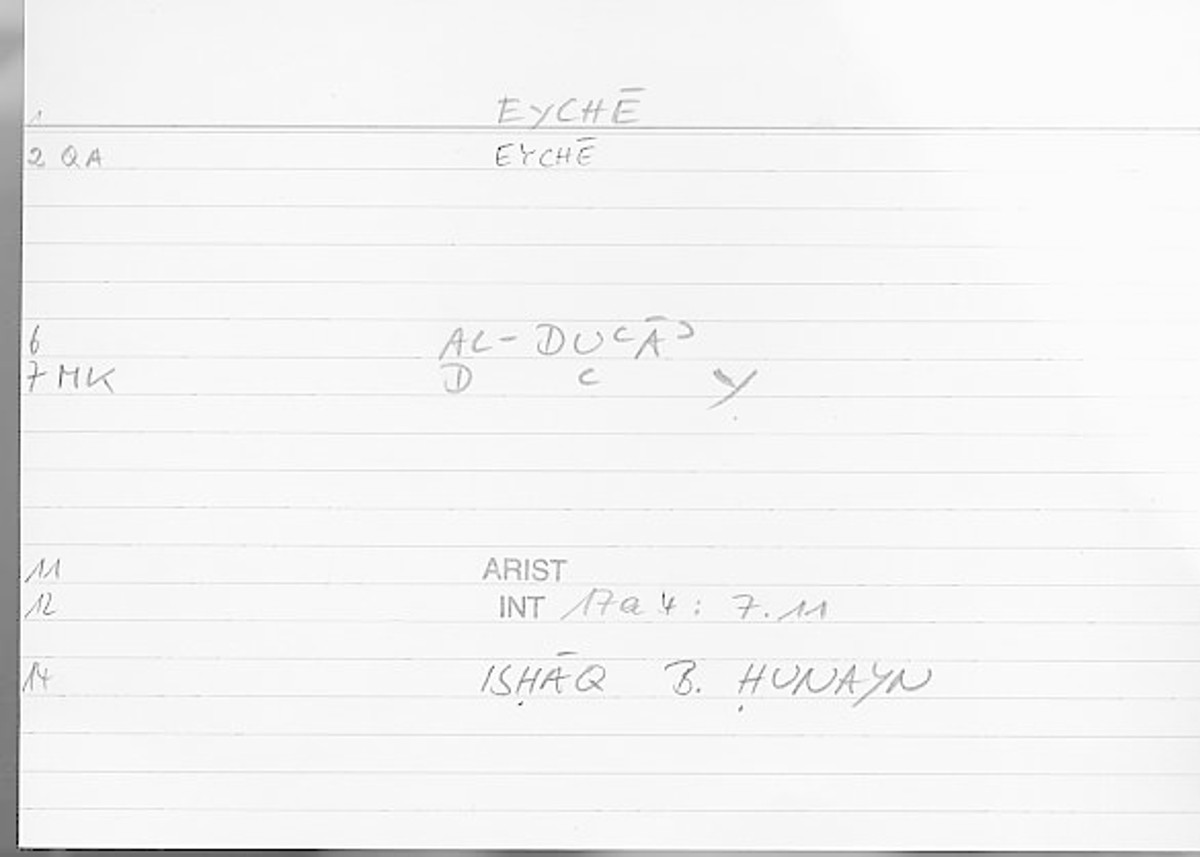 1 EYCHĒ
2 QA EYCHĒ
6 AL-DUʿĀʾ
7 MK D ʿ Y
11 ARIST
12 INT 17a4: 7.11
14 ISḤĀQ B. ḤUNAYN